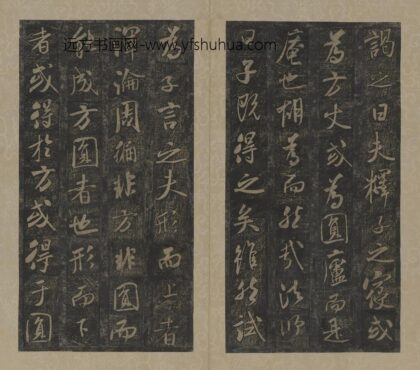 远方书画网-www.yfshuhua.com
謁之曰夫釋子之寢或
為方丈或為圓廬而是
庵也胡為而然哉法師
曰子既得之矣雖然試
為子言之夫形而上者
渾淪周徧非方非圓而
能成方圓者也形而下
者或得於方或得于圓